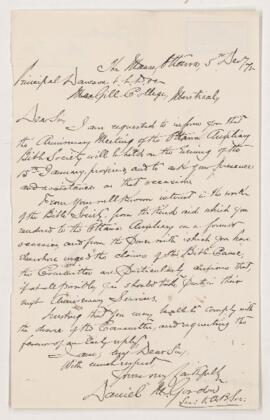 The Manse, Ottawa, 5th Dec /72
Principal Dawson L.L.D. &c
McGill College, Montreal
Dear Sir
I am requested to inform you that
the Anniversary Meeting of the Ottawa Auxiliary
Bible Society will be held on the evening of the
15th January, proximo, and to ask your presence
and assistance on that occasion.
From your well known interest in the work
of the Bible Society, from the kind aid which you
rendered to the Ottawa Auxiliary on a former
occasion and from the power with which you have
elsewhere urged the claims of the Bible Cause,
the Committee are particularly desirous that,
if at all possible, you should take part in their
next Anniversary Services.
Trusting that you may be able to comply with
the desire of the Committee, and requesting the
favour of an early reply
I am, my Dear Sir,
With much respect
Yours very faithfully
Daniel M. Gordon
Sec. O. A. B. Soc.